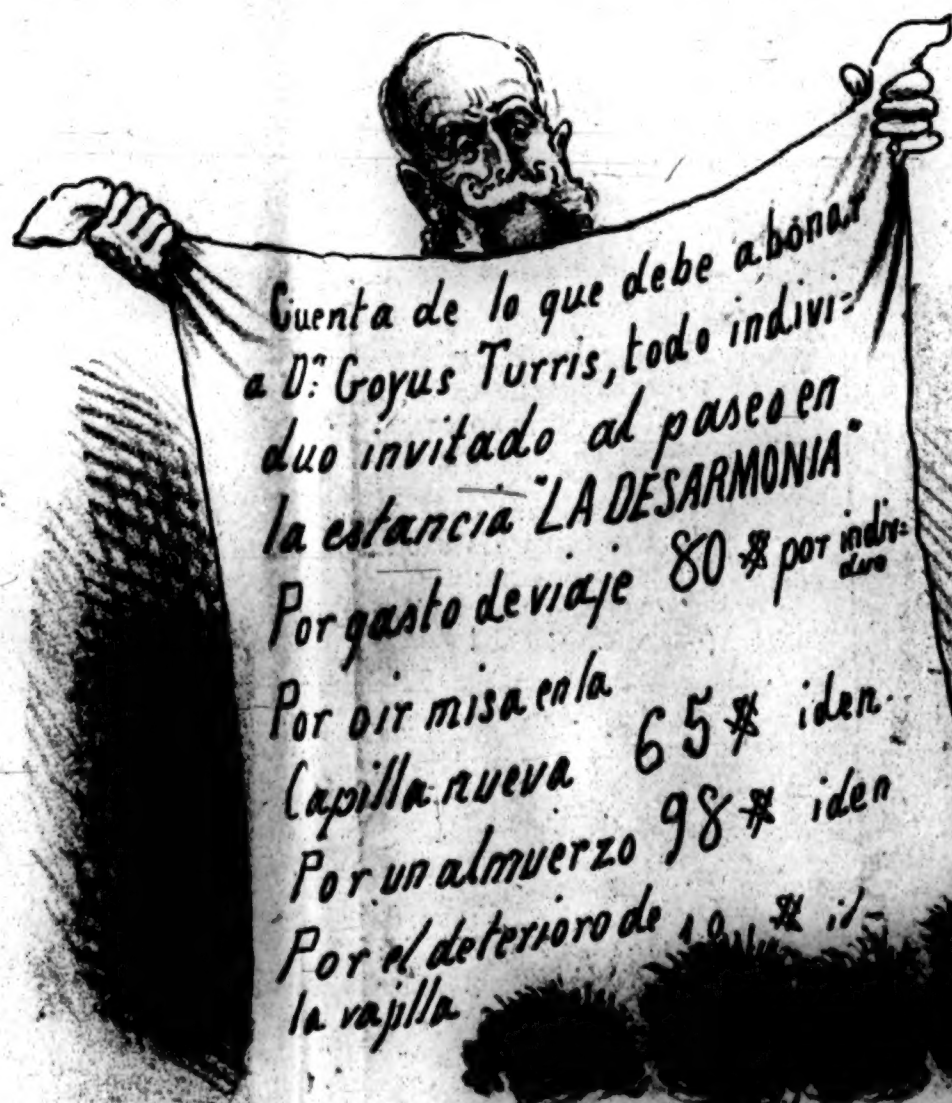 Cuenta de lo que debe abonar
a Dn. Goyus Turris, todo indivi=
duo invitado al paseo en
la estancia "LA DESARMONIA"
Por gasto de viaje 80 $ por indivi=
duo
Por oir misa en la
Capilla nueva 65 $ iden.
Por un almuerzo 98 $ iden
Por el deterioro de $
la vajilla